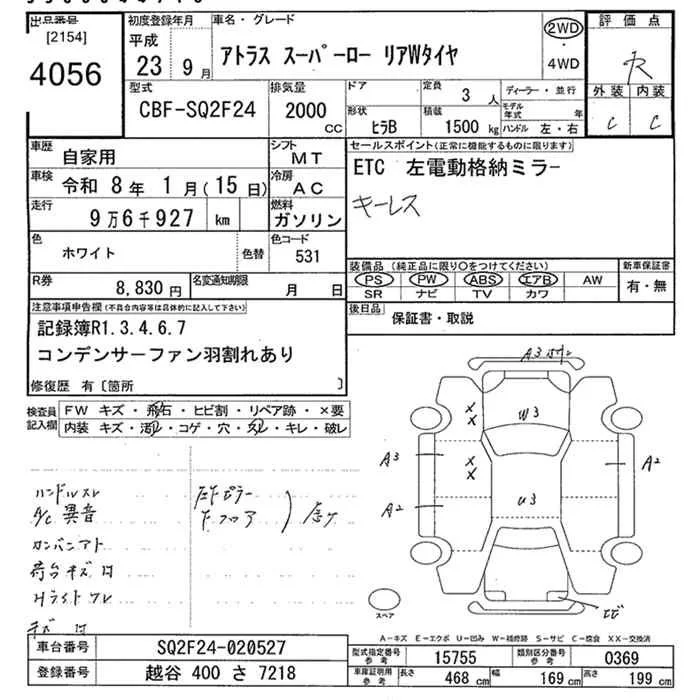 出品番号
[2154]
4056
初度登録年月
平成
23 9月
車名・グレード
アトラス スーパーロー リアWタイヤ
2WD
・
4WD
評価点
R
外装 内装
C C
型式
CBF-SQ2F24
排気量
2000
CC
ドア
定員
3人
形状
ヒラB
積載
1500kg
ディーラー・並行
モデル年式 年
ハンドル 左・右
車歴
自家用
シフト
MT
車検
令和 8年 1月(15日)
冷房
AC
走行
9万6千927 km
燃料
ガソリン
色
ホワイト
色替
色コード
531
R券
8,830円
名変通知期限
月 日
セールスポイント(正常に機能するものに限ります)
ETC 左電動格納ミラー
キーレス
装備品(純正品に限り○をつけてください)
PS PW ABS エアB AW
SR ナビ TV カワ
新車保証書
有・無
後日品
保証書・取説
注意事項申告欄(不具合内容等は具体的に記入して下さい)
記録簿R1.3.4.6.7
コンデンサーファン羽割れあり
修復歴 有〔箇所 〕
検査員記入欄
FW キズ・飛石・ヒビ割・リペア跡・×要
内装 キズ・汚れ・コゲ・穴・スレ・キレ・破レ
ハンドルスレ
A/C異音
カンバンアト
荷台キズ凹
Hライトクレ
下フロア
A3
W3
A3
A2
A2
U3
ヒビ
スペア
A-キズ E-エクボ U-凹み W-補修跡 S-サビ C-腐食 XX-交換済
車台番号
SQ2F24-020527
登録番号
越谷 400 さ 7218
型式指定番号
参考
15755
類別区分番号
参考
0369
車庫証明用
参考
長さ
468 cm
幅
169 cm
高さ
199 cm